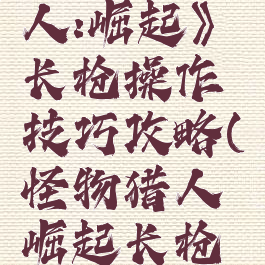 人:崛起》
长枪操作
技巧攻略(
怪物猎人
崛起长枪